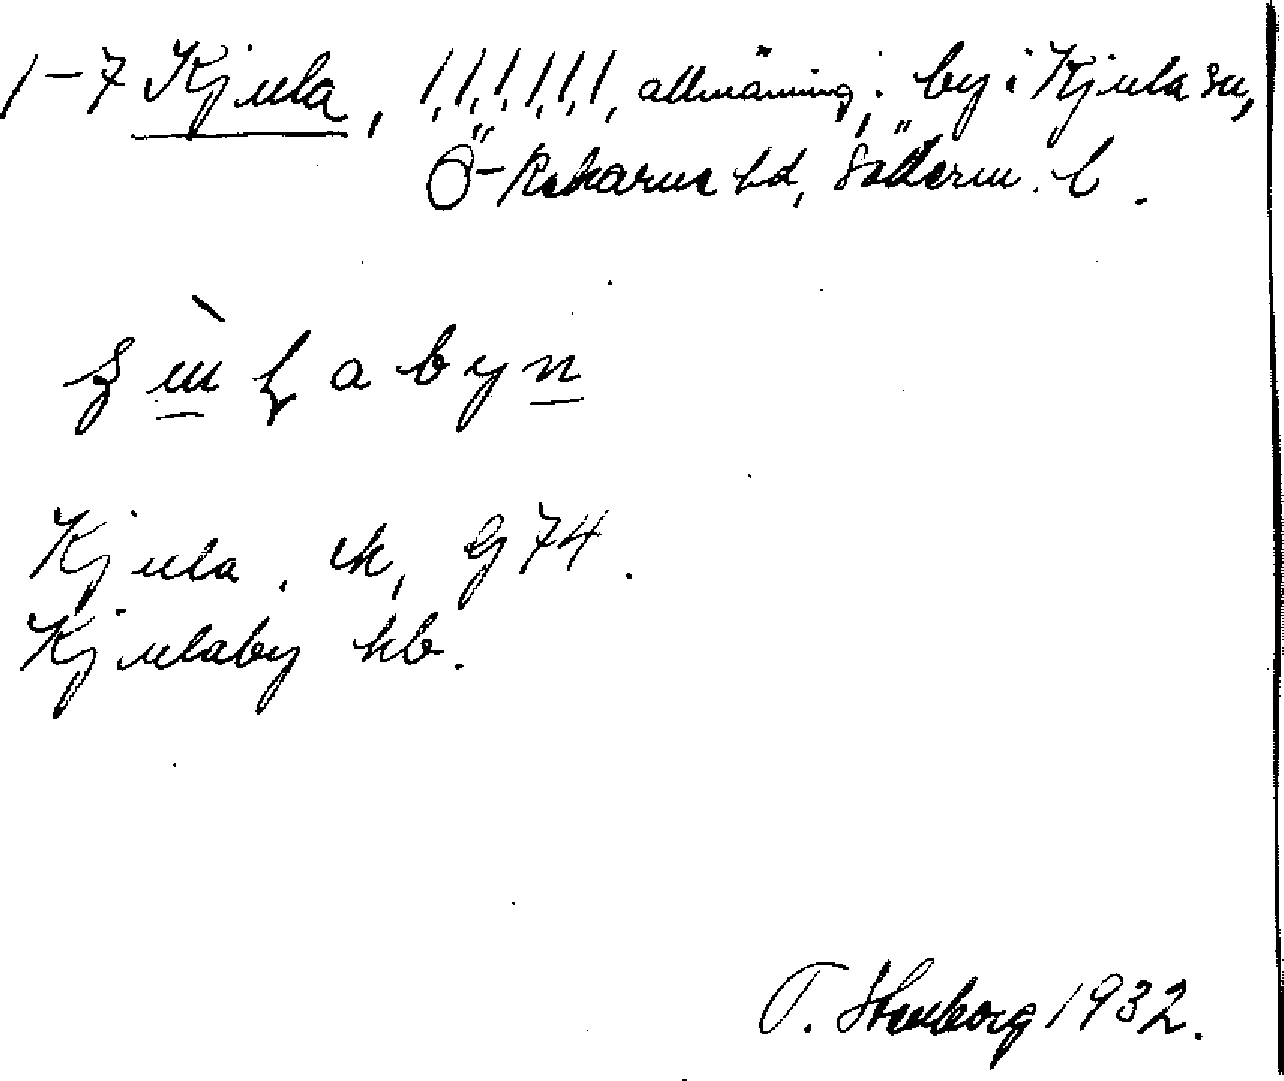 1-7 Kjula, 1,1,1,1,1,1, allmänning; by i Kjula sn,
Ö-Rekarne hd, Söderm. l.
abyn
Kjula. ek, G 74.
Kjulaby hb.
T. Stenborg 1932.